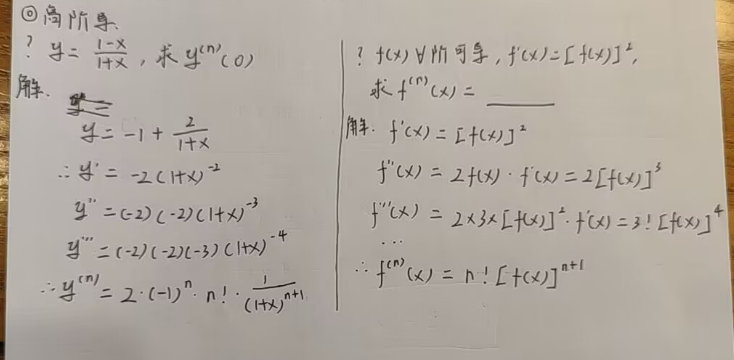 ◎高阶导.
? y = \frac{1-x}{1+x}, 求 y^{(n)}(0)
解.
y = -1 + \frac{2}{1+x}
∴ y' = -2(1+x)^{-2}
y'' = (-2)(-2)(1+x)^{-3}
y''' = (-2)(-2)(-3)(1+x)^{-4}
∴ y^{(n)} = 2·(-1)^n·n!·\frac{1}{(1+x)^{n+1}}
? f(x)∀阶可导, f'(x) = [f(x)]^2,
求 f^{(n)}(x) = ______
解. f'(x) = [f(x)]^2
f''(x) = 2f(x)·f'(x) = 2[f(x)]^3
f'''(x) = 2×3×[f(x)]^2·f'(x) = 3![f(x)]^4
...
∴ f^{(n)}(x) = n![f(x)]^{n+1}